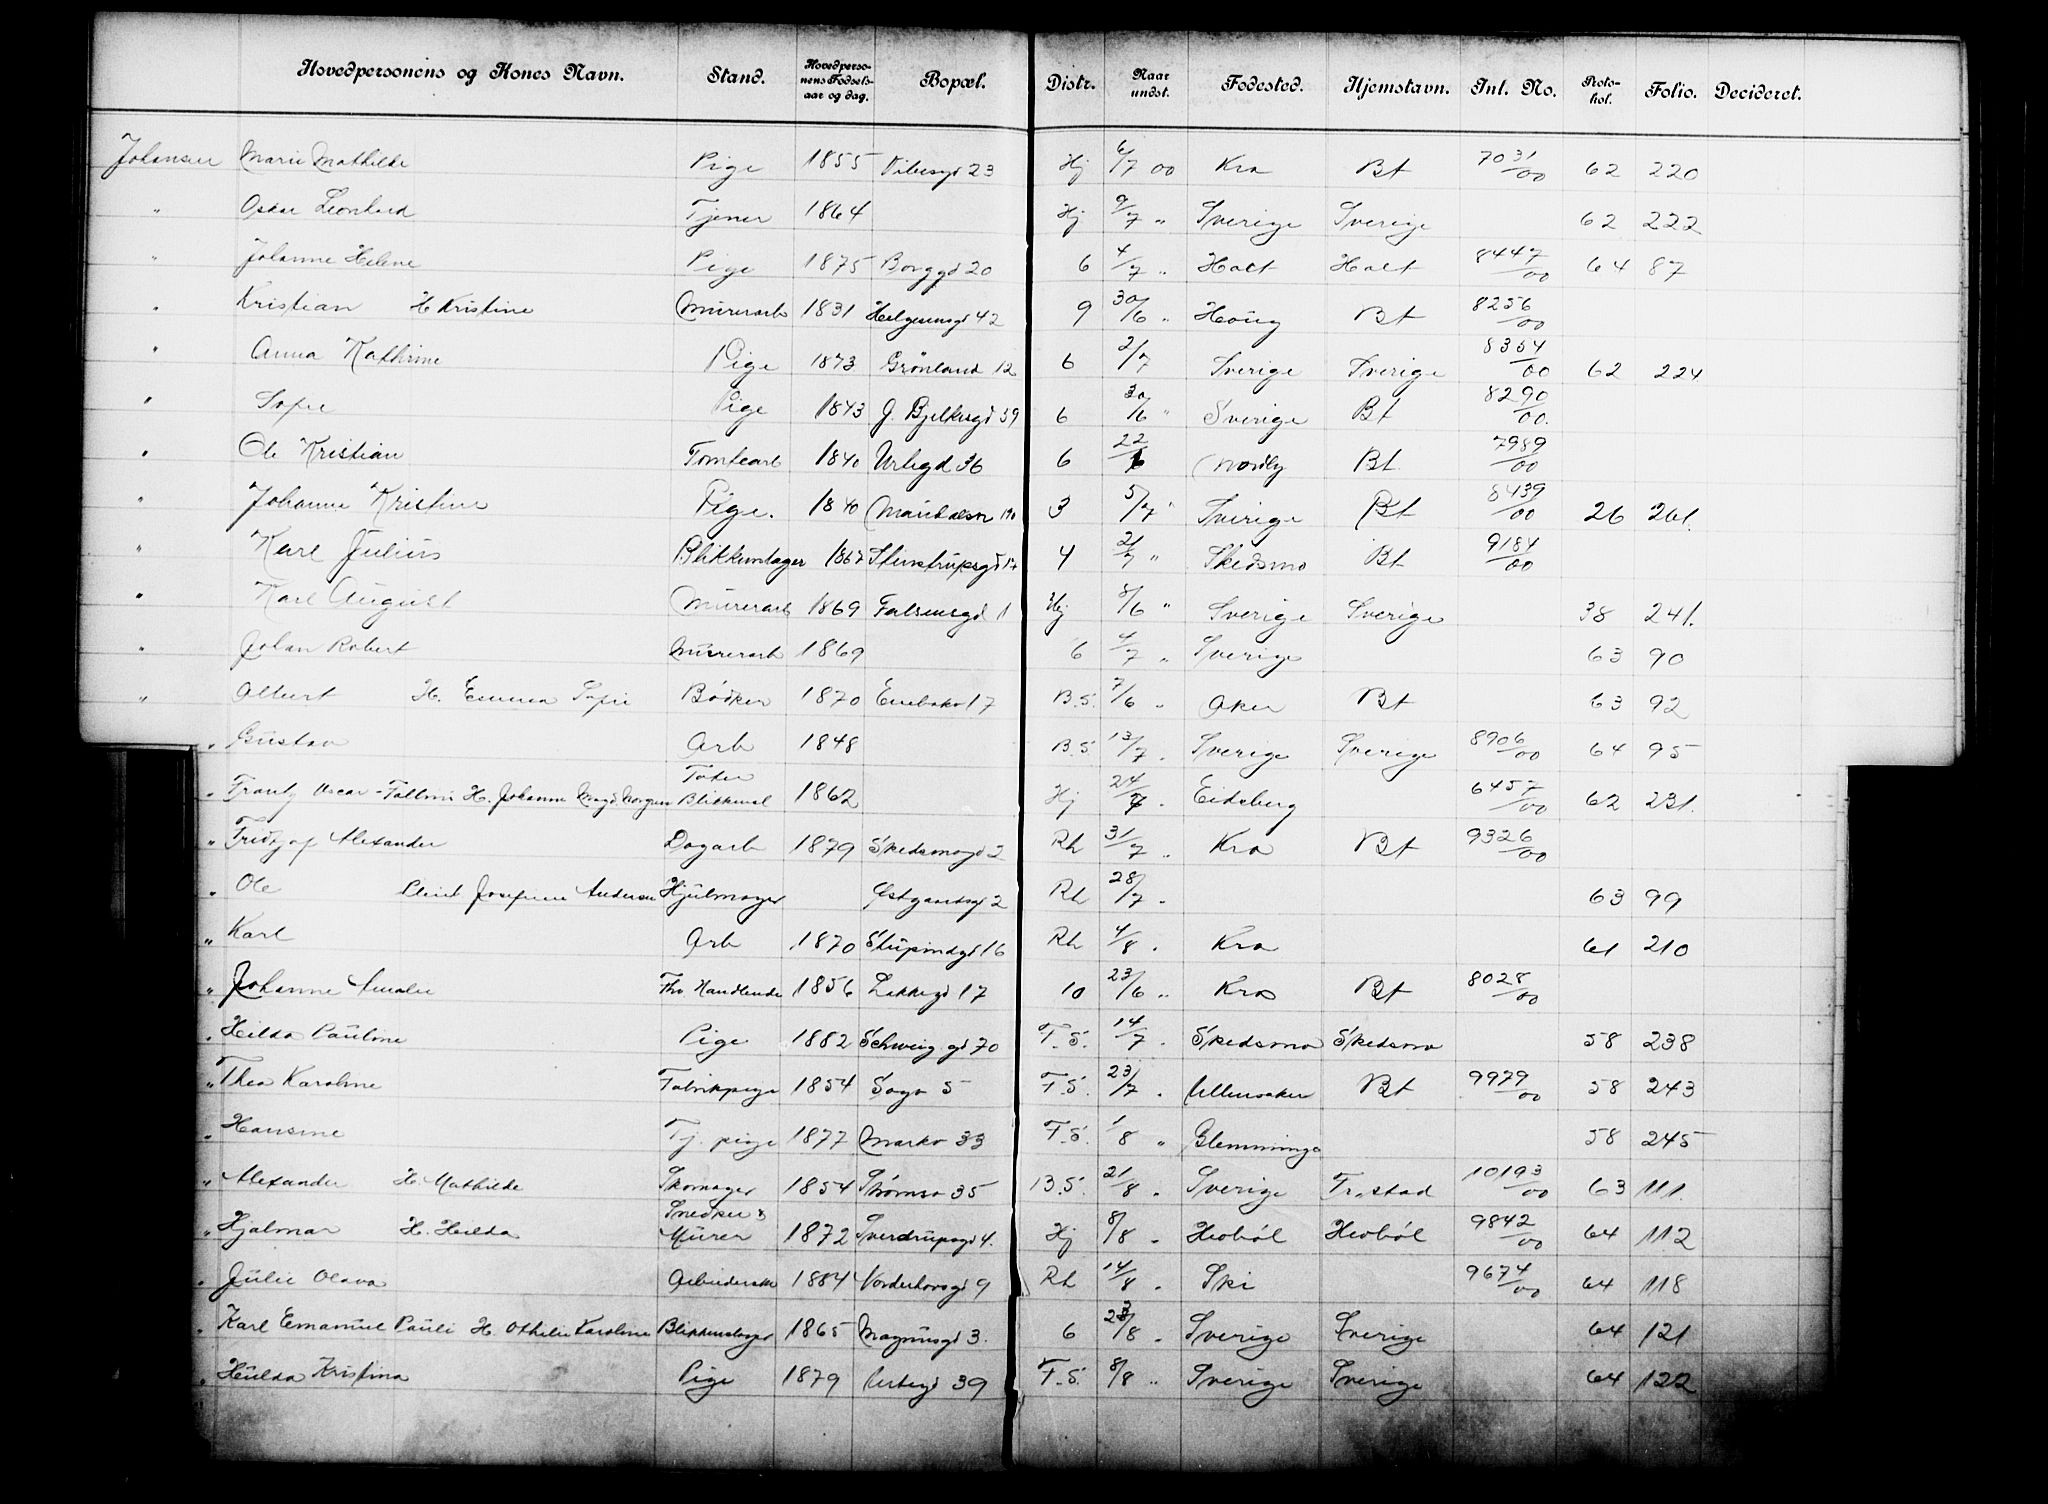 Hovedpersonens og Kones Navn. Stand. Hovedpersonens Fødselsaar og dag. Bopæl. Distr. Naar undst. Fødested. Hjemstavn. Int. No. Protokol. Folio. Decideret.
Johansen Marie Mathilde Pige 1855 Vibesgd 23 Hj 6/7 00 Kra Bt 7031/00 62 220
" Oskar Leonhard Tjener 1864 Hj 9/7 " Sverige Sverige 62 222
" Johanne Helene Pige 1875 Borggd 20 6 4/7 " Holt Holt 8447/00 64 87
" Kristian H Kristine Murerarb 1831 Helgesensgd 42 9 30/6 " Houg Bt 8256/00
" Anna Kathrine Pige 1873 Grønland 12 6 2/7 Sverige Sverige 8354/00 62 224
" Sofie Pige 1843 J. Bjelkesgd 59 6 30/6 " Sverige Bt 8290/00.
" Ole Kristian Tomtearb 1840 Urtegd 36 6 22/6 Nordby Bt. 7989/00
" Johanne Kristine Pige. 1840 3 5/7 " Sverige Bt 8439/00 26 261.
" Karl Julius Blikkenslager 1867 Stenstrupsgd 4 " Skedsmo Bt 9184/00
" Karl August Murerarb 1869 Falsensgd 11 Hj 8/6 " Sverige Sverige 38 241.
" Johan Robert Murerarb 1869 6 4/7 " Sverige 63 90
" Albert H. Emma Sofie Bødker 1870 Enebakv 17 B.S. 7/6 " Aker Bt 63 92
" Gustav Arb 1848 B.S. 13/7 . Sverige Sverige 8906/00 64 95
" Frantz Oscar H. Johanne Blikkensl 1862 Hj 24/7 . Eidsberg 6457/00 62 231.
" Fridtjof Alexander Dagarb 1879 Skedsmogd 2 Rh 31/7 " Kra Bt 9326/00
" Ole Josefine Andersen Hjulmager Østgaardsgd 2 Rh 28/7 . 63 99
" Karl Arb 1870 Stupindgd 16 Rh 4/8 . Kra 61 210
" Johanne Amalie Fhv Handlende 1856 Lakkegd 17 10 23/6 " Kra Bt 8028/00
" Hilda Pauline Pige 1882 Schweig.gd 70 F.S. 14/7 . Skedsmo Skedsmo 58 238
" Thea Karoline Fabrikpige 1854 Sagv 5 F.S. 23/7 . Ullensaker Bt 9979/00 58 243
" Hansine Tj. pige 1877 Markv 33 F.S. 1/8 " Glemminge 58 245
" Alexander H. Mathilde Skomager 1854 Thømsv 35 B.S. 21/8 . Sverige Fr.stad 10193/00 63 111.
" Hjalmar H. Hilda Snedker & Murer 1872 Sverdrupsgd 4. Hj 8/8 . Hobøl Hobøl 9842/00 64 112
" Julie Olava Arbeiderske 1884 Vorderhovsgd 9 Rh 14/8 . Ski 9674/00 64 118
" Karl Emanuel Pauli H. Othilie Karoline Blikkenslager 1865 Magnusgd 3. 6 23/8 . Sverige Sverige 64 121
" Hulda Kristina Pige 1879 Urtegd 39 F.S. 8/8 " Sverige Sverige 64 122